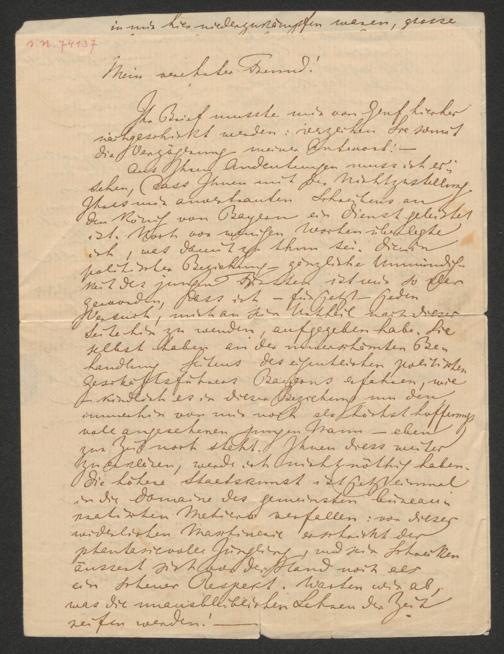 in mir hier niederzukämpfen waren, grosse
I.N. 74137
Mein verehrter Freund!
Ihr Brief musste mir von Genf hierher
nachgeschickt werden: verzeihen Sie somit
die Verzögerung meiner Antwort! —
Aus Ihren Andeutungen muss ich er-
sehen, dass Ihnen mit der Nichtzustellung
Ihres mir anvertrauten Schreibens an
den König von Bayern ein Dienst geleistet
ist. Noch vor wenigen Worten überlegte
ich, was damit zu thun sei. Die in
politischer Beziehung gänzliche Unmündig-
keit des jungen Fürsten ist mir so klar
geworden, dass ich — für jetzt — jeden
Versuch, mich an sein Urtheil nach dieser
Seite hin zu wenden, aufgegeben habe. Sie
selbst haben an der unverschämten Be-
handlung Seitens des eigentlichen politischen
Geschäftsführers Bayerns erfahren, wie
kindlich es in dieser Beziehung um den
immerhin von mir noch als höchst hoffnungs-
voll angesehenen jungen Mann — eben
zur Zeit noch steht. Ihnen diess weiter
zu erklären, werde ich nicht nöthig haben.
Die höhere Staatskunst ist jetzt einmal
in die Domaine des gemeinsten büreau-
kratischen Metiers verfallen: vor dieser
widerlichen Maschinerie erschrickt der
phantasievolle Jüngling, und sein Schrecken
äussert sich vor der Hand noch als
ein scheuer Respekt. Warten wir ab,
was die unausbleiblichen Lehren der Zeit
reifen werden! —